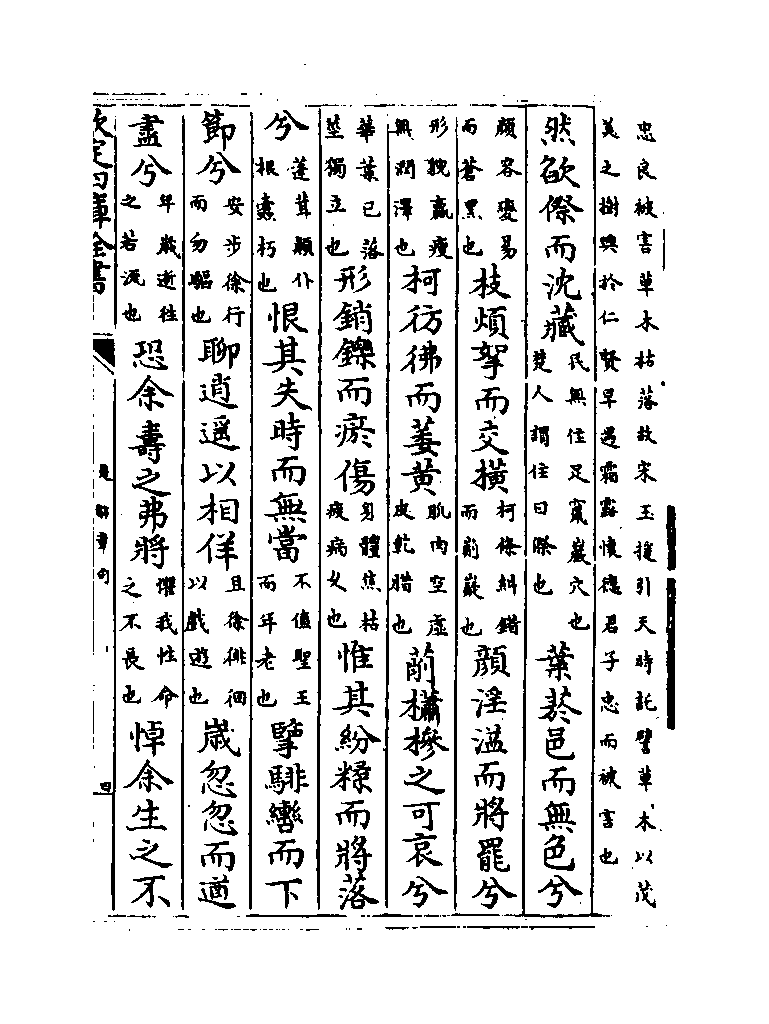 忠良被害草木枯落故宋玉援引天時託譬草木以茂
美之樹興於仁賢早遇霜露懷德君子忠而被害也
然欲傺而沈藏民無住足竄巖穴也楚人謂住曰傺也葉菸邑而無色兮
顔容變易而蒼黑也枝煩挐而交横柯條糾錯而崱嶷也顔淫溢而將罷兮
形貌羸瘦無潤澤也柯彷彿而萎黄肌肉空虛皮乾腊也萷櫹槮之可哀兮
華葉已落莖獨立也形銷鑠而瘀傷身體焦枯疲病久也惟其紛糅而將落
兮蓬茸顛仆根蠹朽也恨其失時而無當不值聖王而年老也擥騑轡而下
節兮安步徐行而勿驅也聊逍遥以相佯且徐徘徊以戲遊也嵗忽忽而遒
盡兮年嵗逝往之若流也恐余壽之弗將懼我性命之不長也悼余生之不
欽定四庫全書
楚辭章句
四